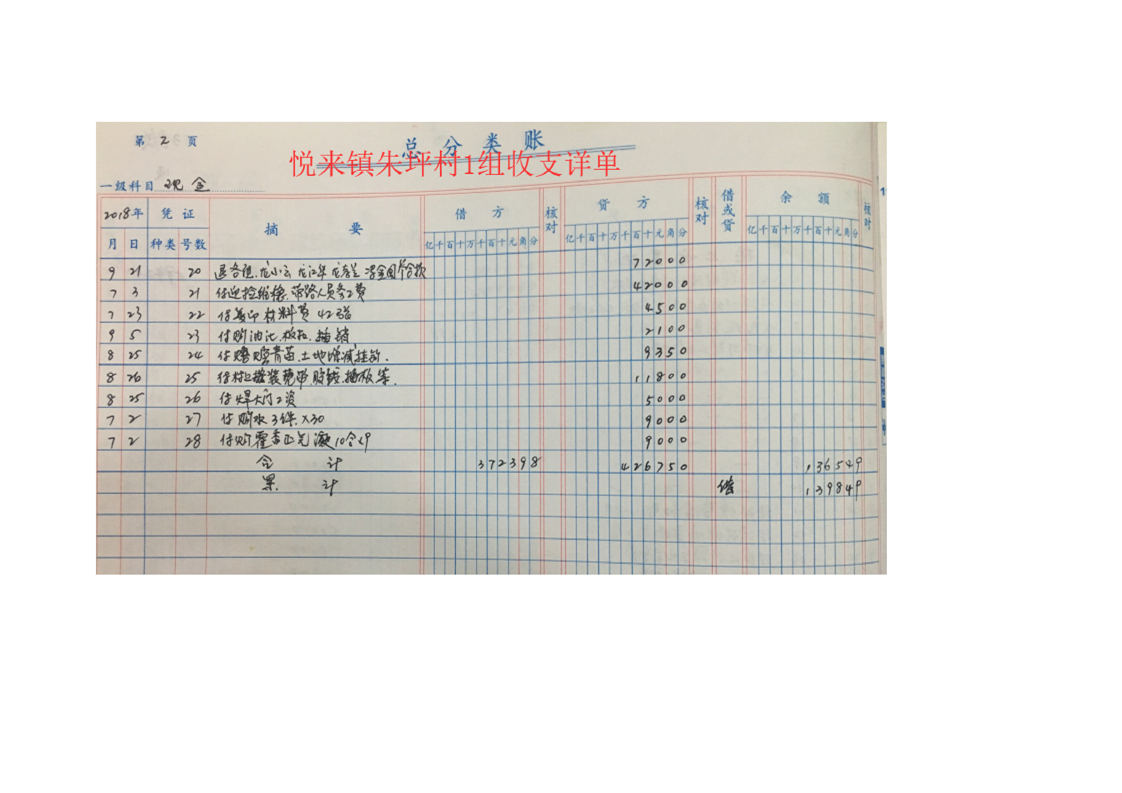 第 2 页
总分类账
悦来镇朱坪村1组收支详单
一级科目 现金
2018年 凭证 摘要 借方 核对 贷方 核对 借或贷 余额 核对
月 日 种类 号数 亿千百十万千百十元角分 亿千百十万千百十元角分 亿千百十万千百十元角分
9 21 20 龙小云 龙江华 72000
7 3 21 带路人员务工费 42000
7 23 22 付复印材料费 42张 4500
9 5 23 付购油 插销 2100
8 25 24 青苗.土地增减挂钩. 9350
8 26 25 插板等. 11800
8 25 26 付焊大门工资 5000
7 2 27 付购水3件×30 9000
7 2 28 付购霍香正气液10合×9 9000
合计 372398 426750 136549
累计 借 139849